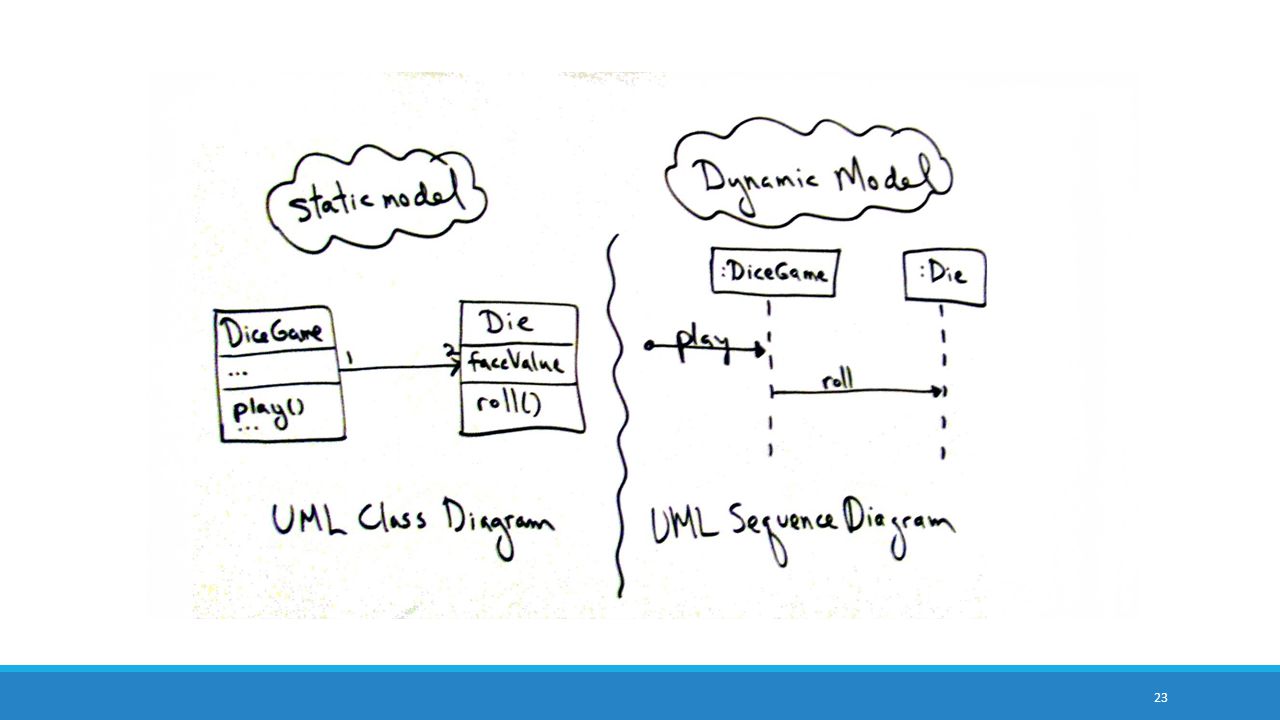 static model
DiceGame
...
play()
...
1
2
Die
faceValue
roll()
UML Class Diagram
Dynamic Model
:DiceGame
:Die
play
roll
UML Sequence Diagram
23